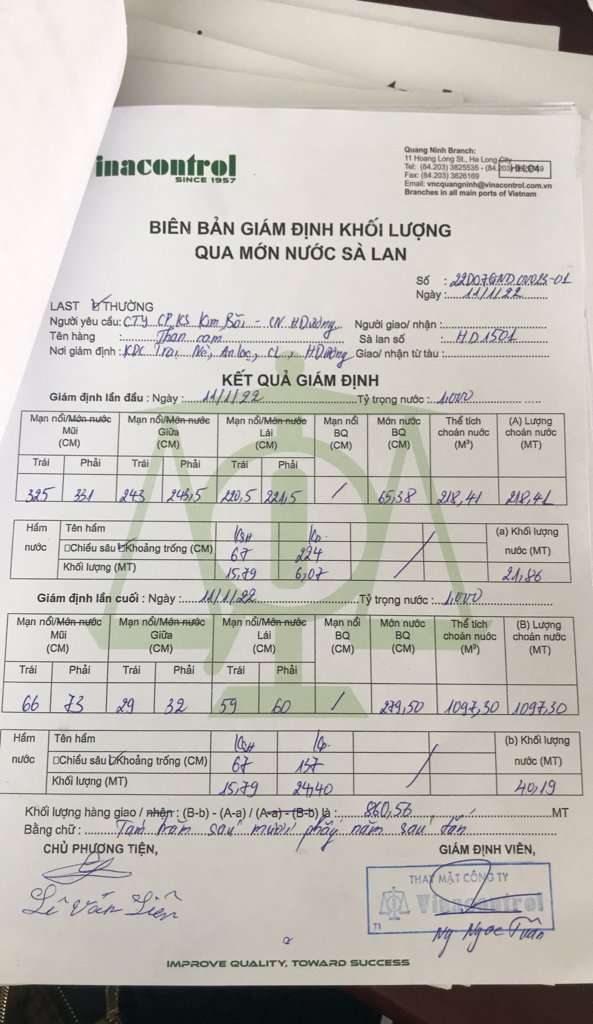 inacontrol
SINCE 1957
Quang Ninh Branch:
11 Hoang Long St., Ha Long City
Tel: (84.203) 3825535 - (84.203)
HH.04
Fax: (84.203) 3826169
Email: vncquangninh@vinacontrol.com.vn
Branches in all main ports of Vietnam
BIÊN BẢN GIÁM ĐỊNH KHỐI LƯỢNG
QUA MỚN NƯỚC SÀ LAN
Số :
Ngày: 11/1/22
LAST THƯỜNG
Người yêu cầu: CTY CP KS Kim Bôi - CN H.Dương Người giao/ nhận :
Tên hàng : Than cám Sà lan số : HD1501
Nơi giám định : KDC Trại Nẻ, An lạc, CL, H.Dương Giao/ nhận từ tàu :
KẾT QUẢ GIÁM ĐỊNH
Giám định lần đầu : Ngày : 11/1/22 Tỷ trọng nước: 1,000
Mạn nổi/Mớn nước Mũi (CM) Mạn nổi/Mớn nước Giữa (CM) Mạn nổi/Mớn nước Lái (CM) Mạn nổi BQ (CM) Mớn nước BQ (CM) Thể tích choán nước (M³) (A) Lượng choán nước (MT)
Trái Phải Trái Phải Trái Phải
325 331 243 243,5 220,5 221,5 / 65,38 218,41 218,41
Hầm nước Tên hầm (a) Khối lượng nước (MT)
□Chiều sâu □Khoảng trống (CM) 67 224
Khối lượng (MT) 15,79 6,07 21,86
Giám định lần cuối : Ngày: 11/1/22 Tỷ trọng nước: 1,000
Mạn nổi/Mớn nước Mũi (CM) Mạn nổi/Mớn nước Giữa (CM) Mạn nổi/Mớn nước Lái (CM) Mạn nổi BQ (CM) Mớn nước BQ (CM) Thể tích choán nước (M³) (B) Lượng choán nước (MT)
Trái Phải Trái Phải Trái Phải
66 73 29 32 59 60 / 279,50 1097,30 1097,30
Hầm nước Tên hầm (b) Khối lượng nước (MT)
□Chiều sâu □Khoảng trống (CM) 67 157
Khối lượng (MT) 15,79 24,40 40,19
Khối lượng hàng giao / nhận : (B-b) - (A-a) / (A-a) - (B-b) là : 860,56 MT
Bằng chữ : Tám trăm sáu mươi phẩy năm sáu tấn
CHỦ PHƯƠNG TIỆN, GIÁM ĐỊNH VIÊN,
THAY MẶT CÔNG TY
Vinacontrol
T1
Lê Văn Liễn
Ng Ngọc Tuấn
IMPROVE QUALITY, TOWARD SUCCESS